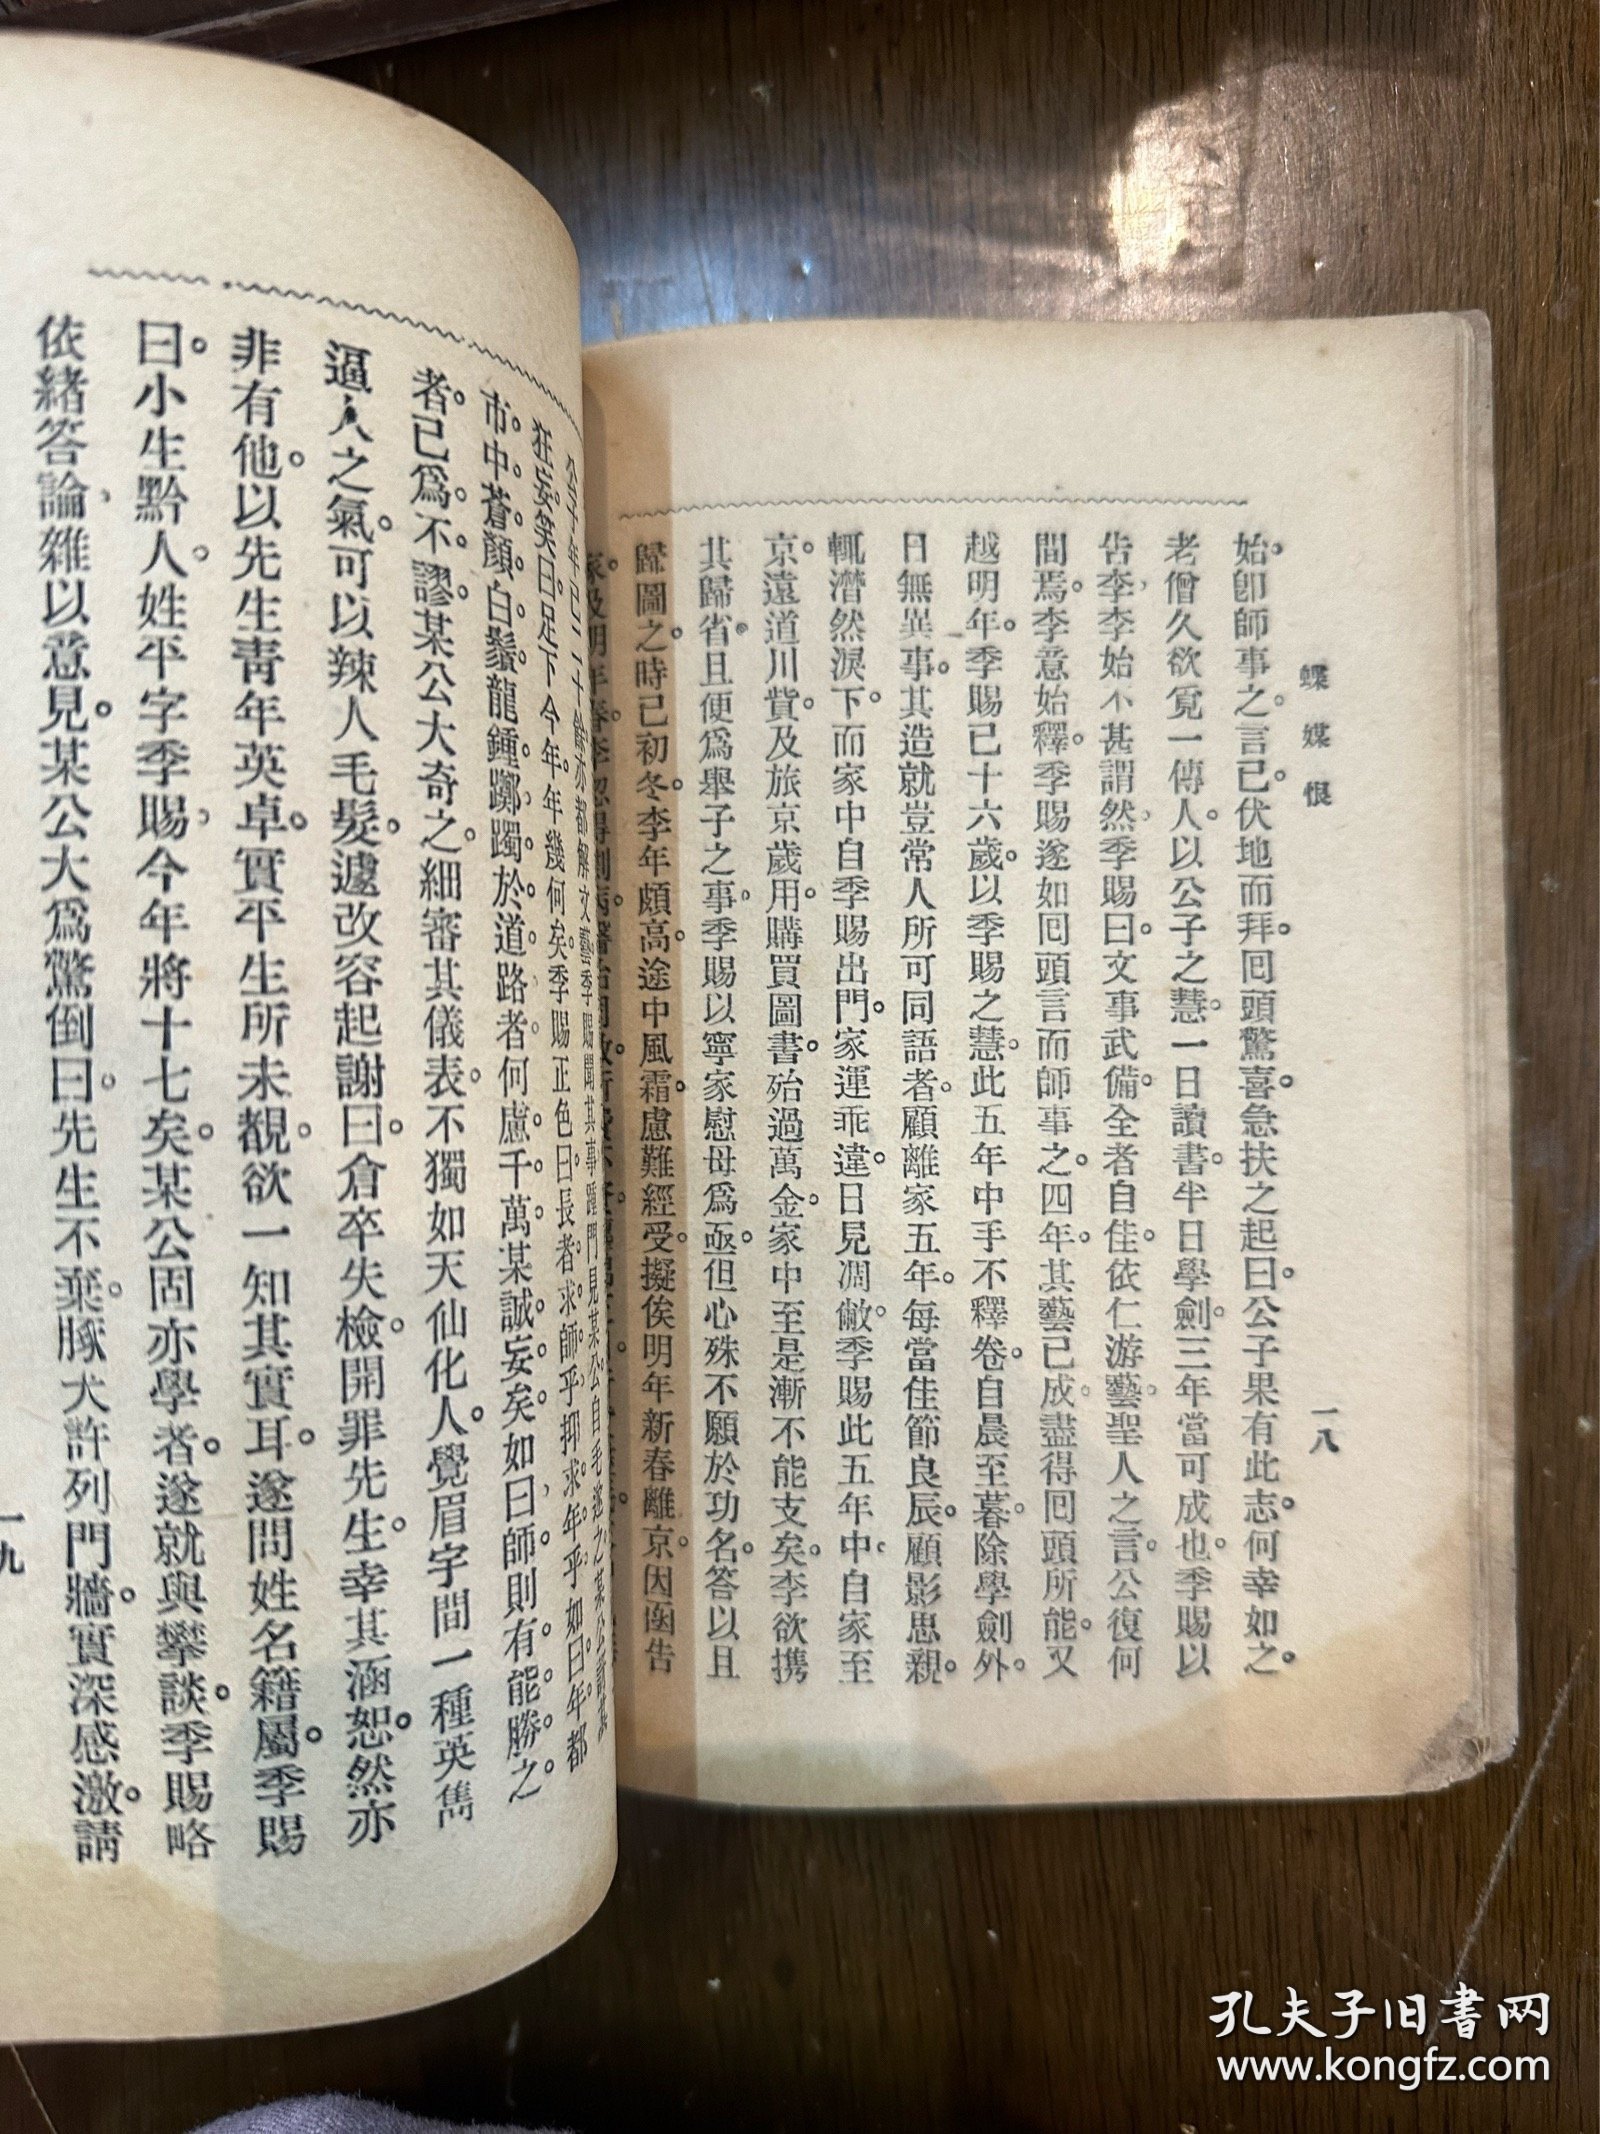 蝶媒恨
一八
始。卽師事之。言已。伏地而拜。囘頭驚喜。急扶之起曰。公子果有此志。何幸如之。
老僧久欲覓一傳人。以公子之慧。一日讀書。半日學劍。三年當可成也。季賜以
告李。李始不甚謂然。季賜曰。文事武備。全者自佳。依仁游藝。聖人之言。公復何
間焉。李意始釋。季賜遂如囘頭言而師事之。四年。其藝已成。盡得囘頭所能。又
越明年。季賜已十六歲。以季賜之慧。此五年中。手不釋卷。自晨至暮。除學劍外。
日無異事。其造就豈常人所可同語者。顧離家五年。每當佳節良辰。顧影思親。
輒潸然淚下。而家中自季賜出門。家運乖違。日見凋敝。季賜此五年中。自家至
京。遠道川貲。及旅京歲用。購買圖書。殆過萬金。家中至是漸不能支矣。李欲携
其歸省。且便爲舉子之事。季賜以寧家慰母爲亟。但心殊不願於功名。答以且
歸圖之。時已初冬。李年頗高。途中風霜。慮難經受。擬俟明年新春離京。因函告
狂妄。笑曰。足下今年。年幾何矣。季賜正色曰。長者。求師乎。抑求年乎。如曰。年都
市中。蒼顏白鬚。龍鍾躑躅於道路者。何慮千萬。某誠妄矣。如曰。師。則有能勝之
者。已爲不謬。某公大奇之。細審其儀表。不獨如天仙化人。覺眉宇間一種英雋
逼人之氣。可以辣人毛髮。遽改容起謝曰。倉卒失檢。開罪先生。幸其涵恕。然亦
非有他。以先生靑年英卓。實平生所未覩。欲一知其實耳。遂問姓名籍屬。季賜
曰。小生黔人。姓平字季賜。今年將十七矣。某公固亦學者。遂就與攀談。季賜略
依緒答論。雜以意見。某公大爲驚倒。曰。先生不棄。豚犬許列門牆。實深感激。請
一九